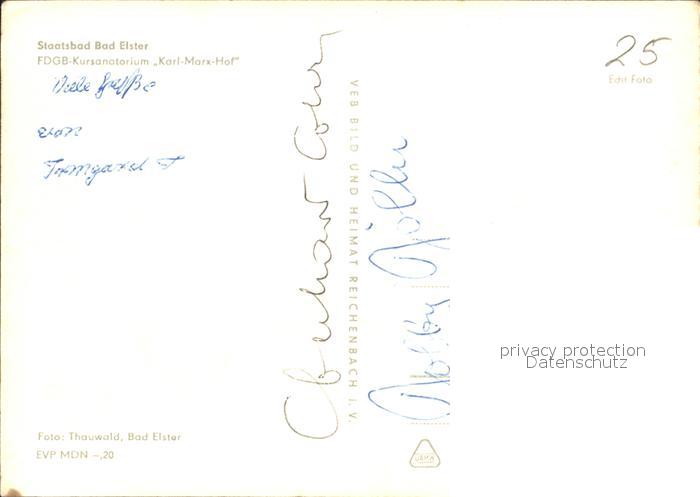 Staatsbad Bad Elster
FDGB-Kursanatorium „Karl-Marx-Hof"
Viele Grüße
von
Irmgard T
25
Echt Foto
VEB BILD UND HEIMAT REICHENBACH I. V.
privacy protection
Datenschutz
Foto: Thauwald, Bad Elster
EVP MDN –,20